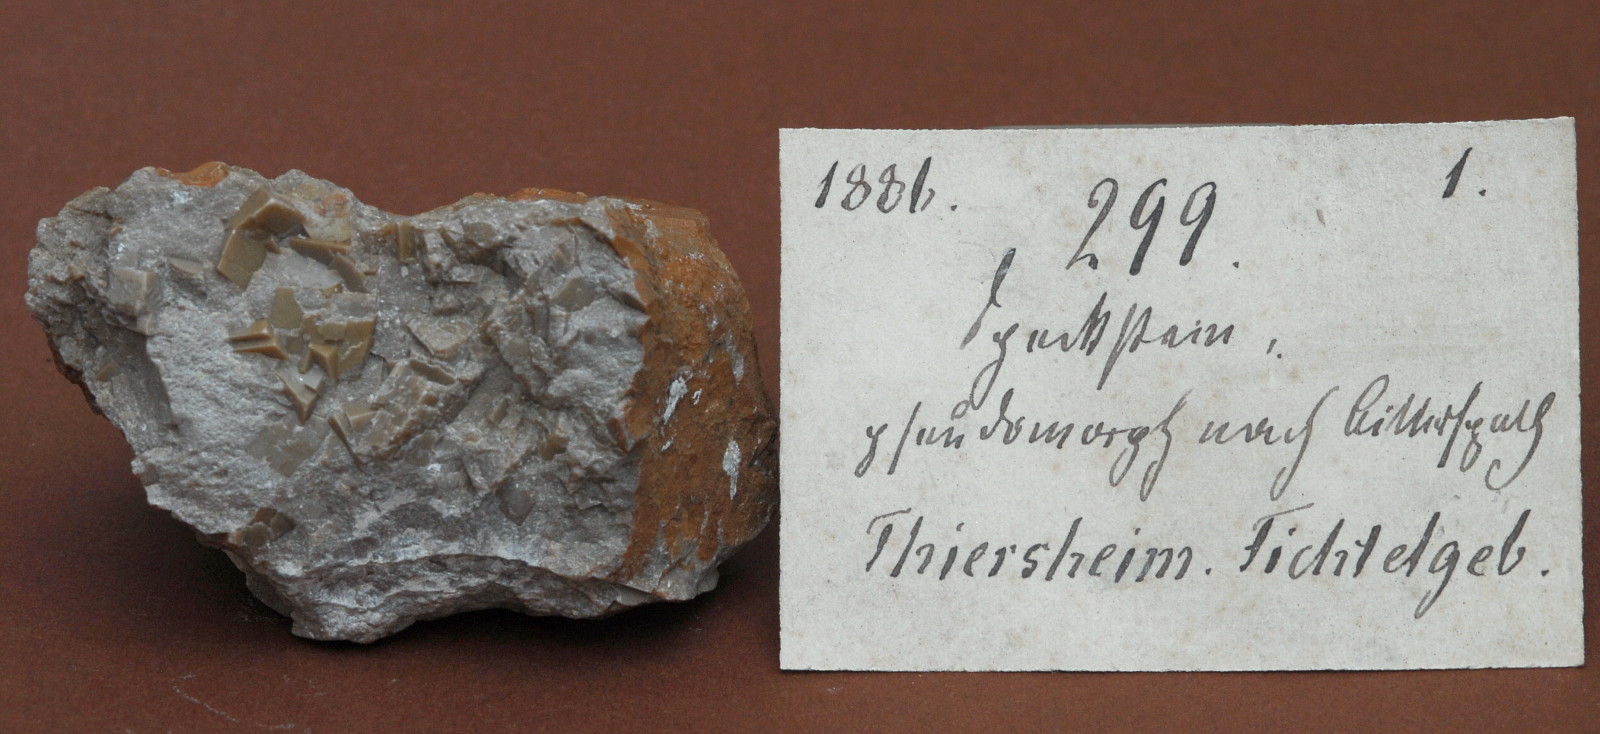 1886. 299. 1.
Speckstein,
pseudomorph nach Bitterspath
Thiersheim. Fichtelgeb.